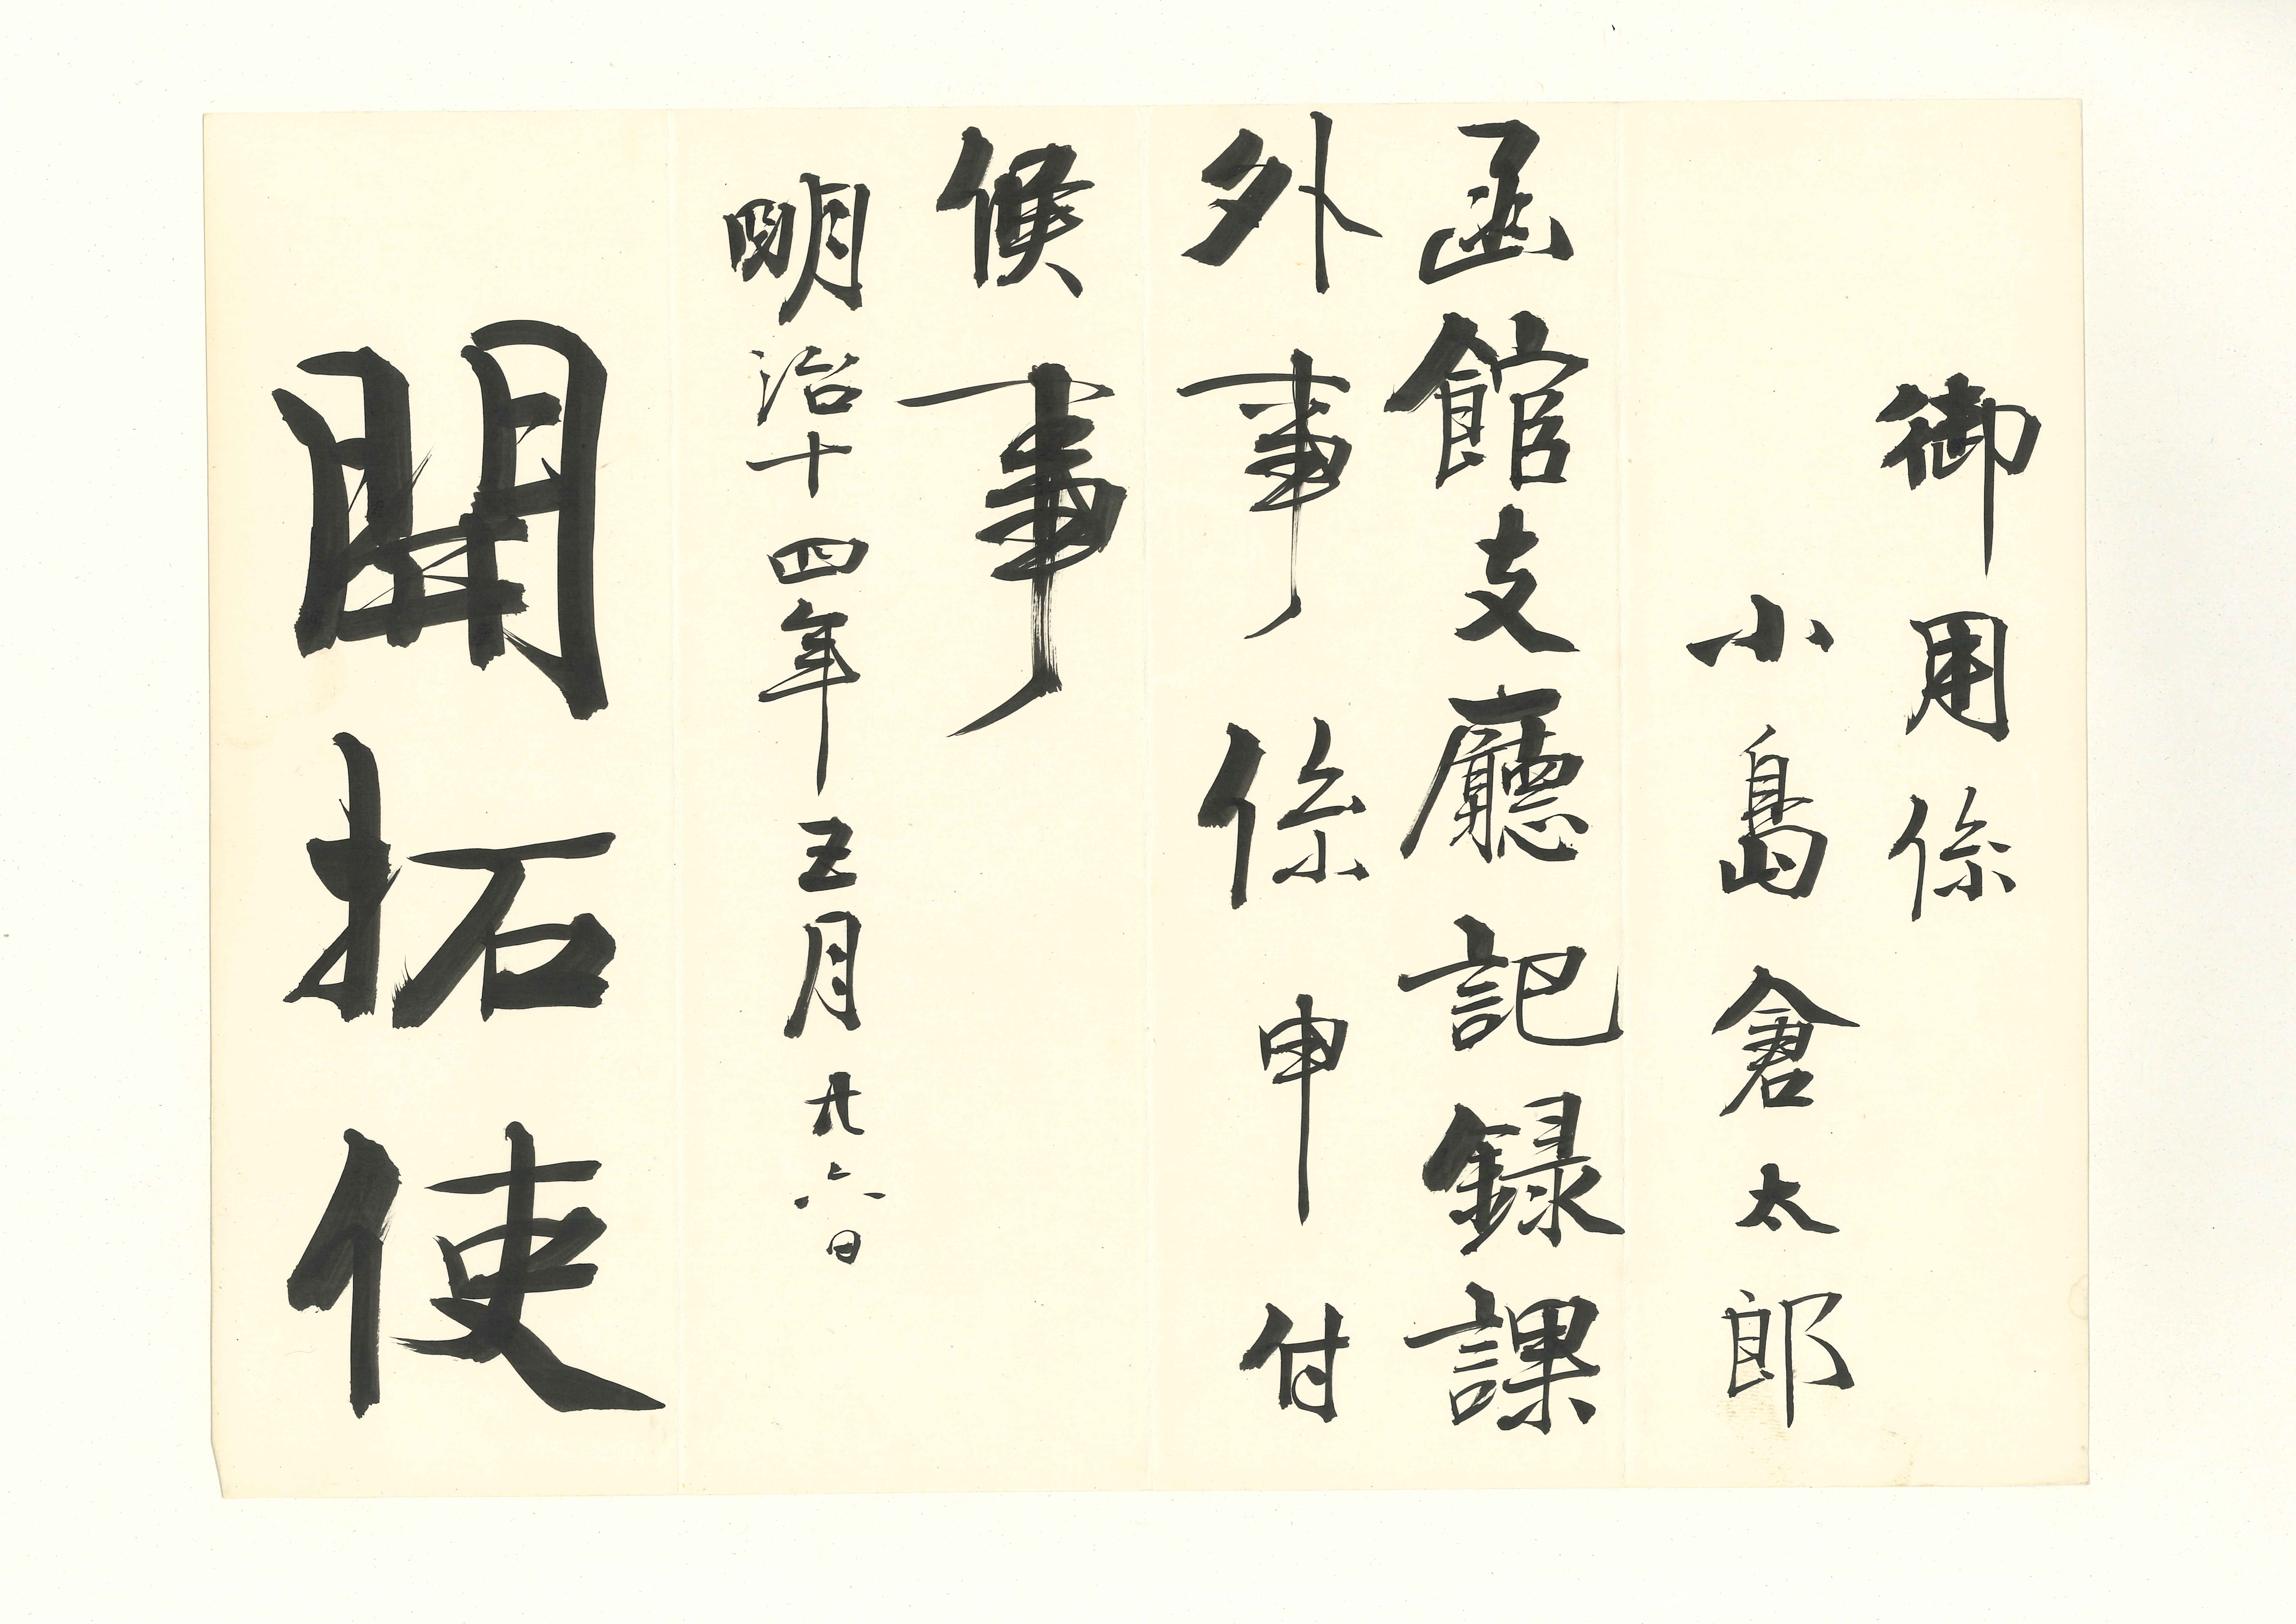 御用係
小島倉太郎
函館支廳記録課
外事係申付
候事
明治十四年五月廿六日
開拓使